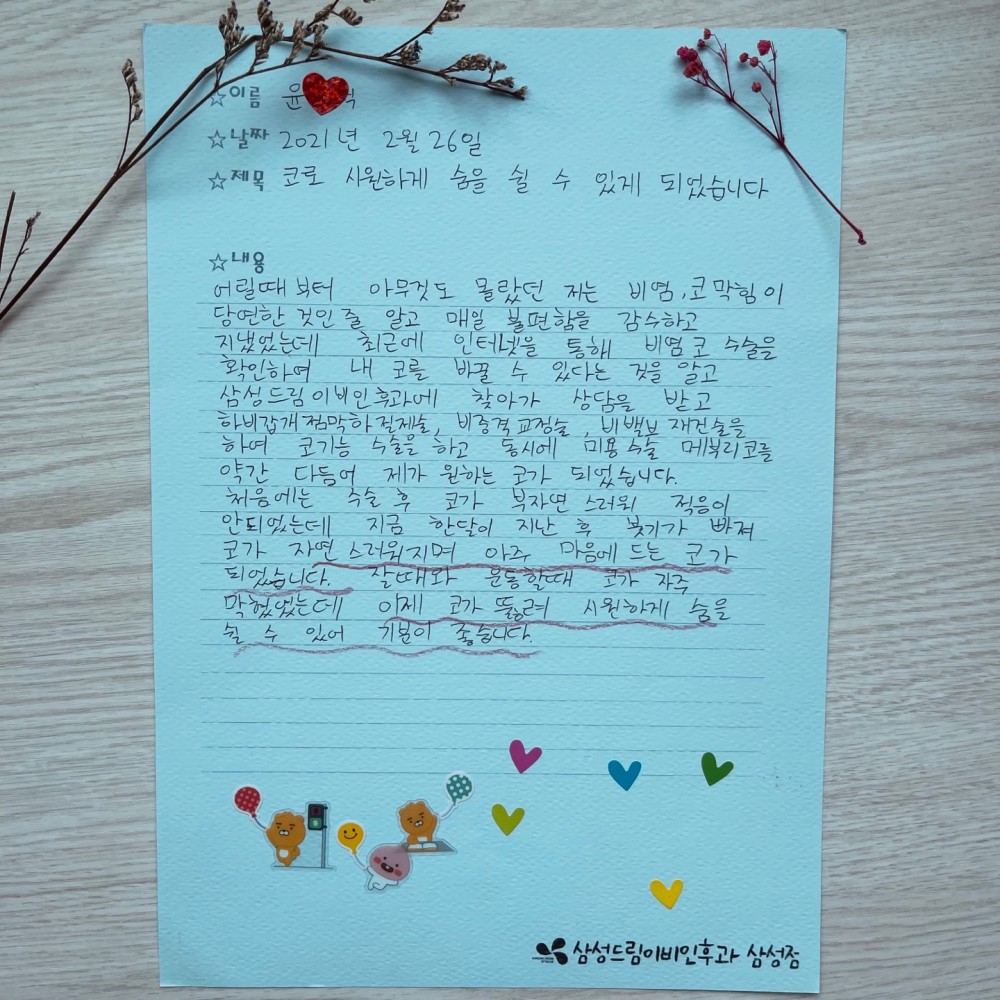 ☆이름 윤
☆날짜 2021년 2월 26일
☆제목 코로 시원하게 숨을 쉴 수 있게 되었습니다
☆내용
어릴때부터 아무것도 몰랐던 저는 비염, 코막힘이
당연한 것인 줄 알고 매일 불편함을 감수하고
지냈었는데 최근에 인터넷을 통해 비염 코 수술을
확인하여 내 코를 바꿀 수 있다는 것을 알고
삼성드림이비인후과에 찾아가 상담을 받고
하비갑개점막하절제술, 비중격교정술, 비밸브재건술을
하여 코기능 수술을 하고 동시에 미용수술 매부리코를
약간 다듬어 제가 원하는 코가 되었습니다.
처음에는 수술 후 코가 부자연스러워 적응이
안되었는데 지금 한달이 지난 후 붓기가 빠져
코가 자연스러워지며 아주 마음에 드는 코가
되었습니다. 잘때와 운동할때 코가 자주
막혔었는데 이제 코가 뚫려 시원하게 숨을
쉴 수 있어 기분이 좋습니다.
삼성드림이비인후과 삼성점